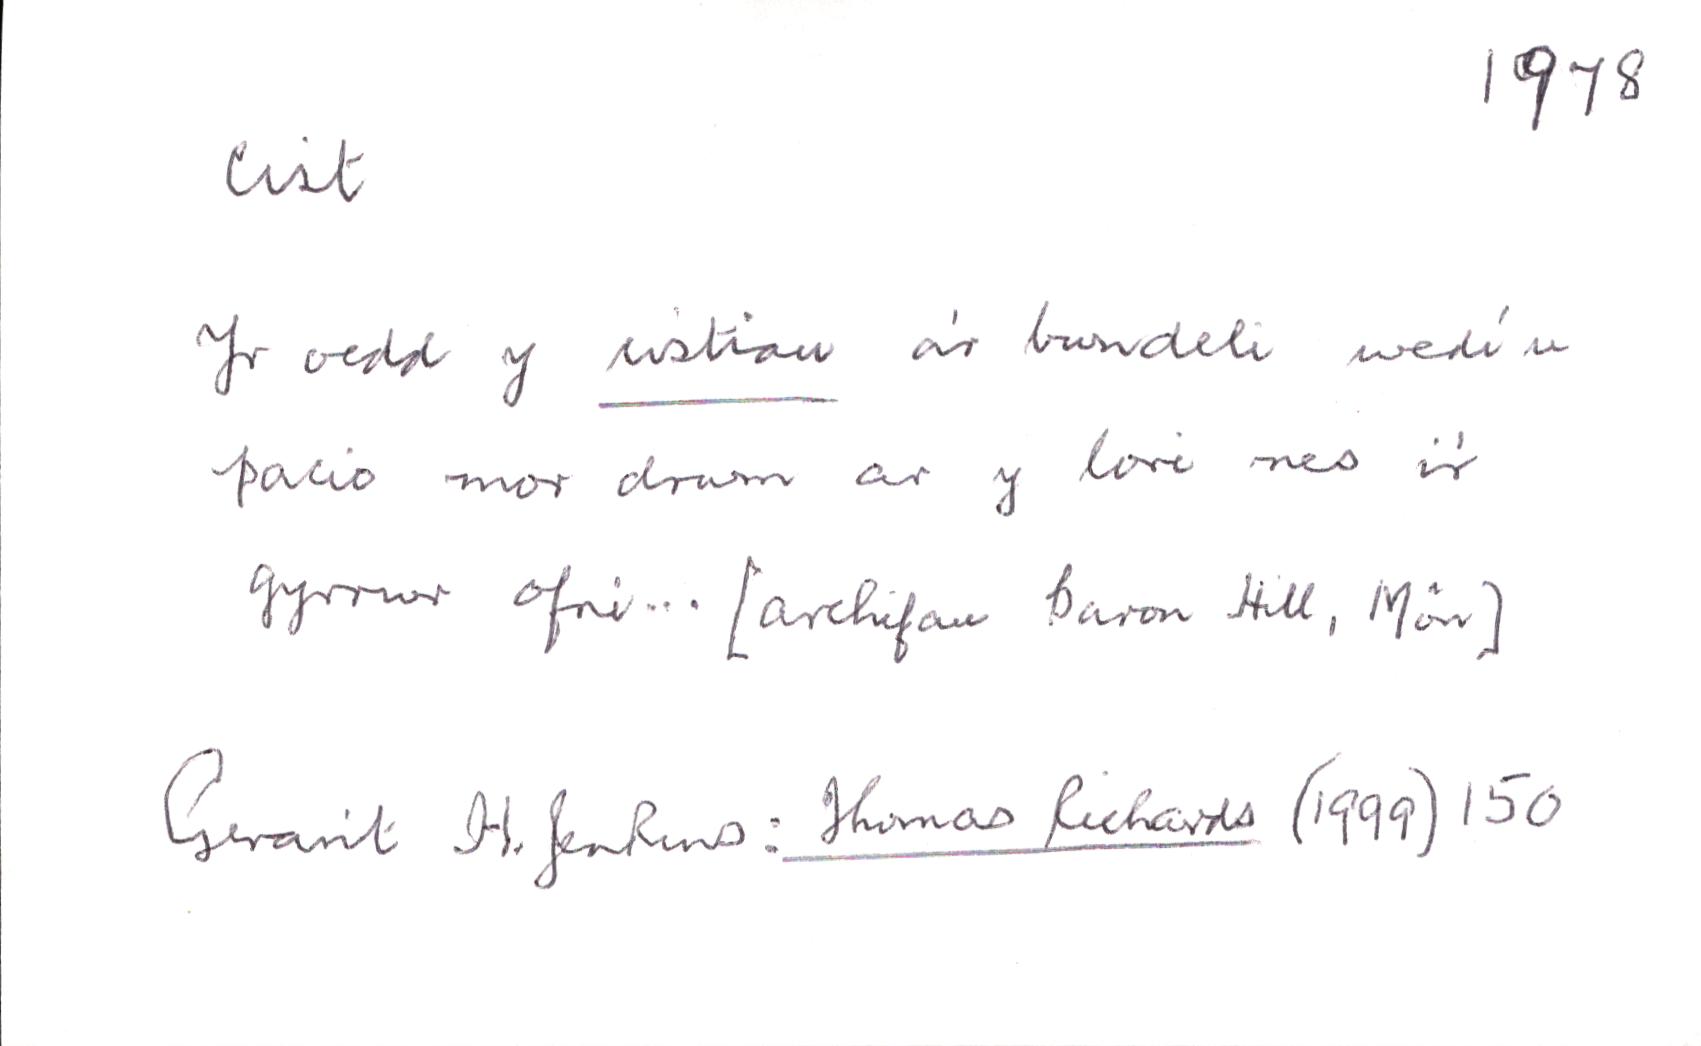 1978
Cist
Yr oedd y cistiau a'r bwndeli wedi'u
pacio mor drwm ar y lori nes i'r
gyrrwr ofni... [archifau Baron Hill, Môn]
Geraint H. Jenkins: Thomas Richards (1999) 150